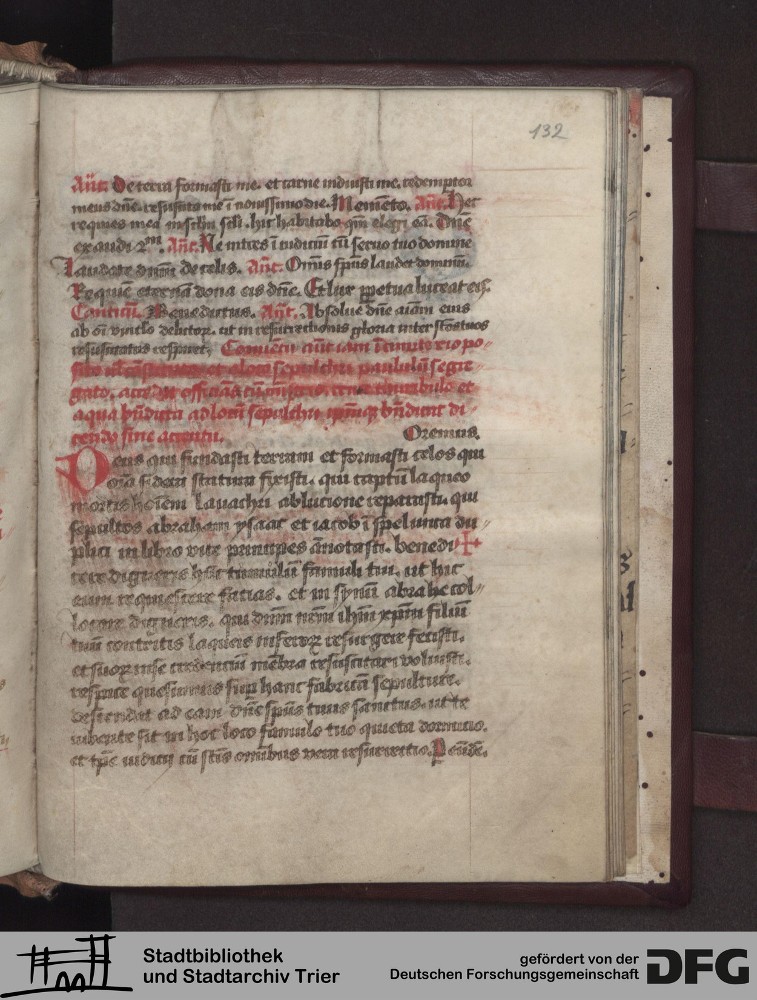 132
Añt. De terra formasti me. et carne induisti me. redemptor
meus dñe. resuscita me ĩ nouissimo die. Memẽto. Añt. Hec
requies mea in sc̃lm sc̃li. hic habitabo qm̃ elegi eã. Dñe
exaudi 2ᵐ. Añt. Ne intres ĩ iudiciũ cũ seruo tuo domine
Laudate dnm̃ de celis. Añt. Om̃is sp̃us laudet dominũ.
Requiẽ eternã dona eis dñe. Et lux ꝑpetua luceat eis.
Canticũ. Benedictus. Añt. Absolue dñe aĩam eius
ab oĩ vinclo delictoꝝ. ut in resurrectionis gloria inter sc̃os tuos
resuscitatus respiret.
aqua bñdicta ad locũ sepulchri
cendo sine accentu. Oremus.
Deus qui fundasti terram et formasti celos qui
oĩa siderũ statuta fixisti. qui captũ laqueo
mortis hoĩem lauachri ablucione reparasti. qui
sepultos abraham ysaac et iacob ĩ spelunca du〃
plici in libro vite principes ãnotasti. benedi ✝
cere digneris hũc tumulũ famuli tui. ut hic
eum requiescere facias. et in synũ abrahe col〃
locare digneris. qui dnm̃ nrm̃ ihm̃ xp̃m filiũ
tuũ contritis laqueis inferoꝝ resurgere fecisti.
et suoꝝ in se credentiũ mẽbra resuscitari voluisti.
respice quesumus sup̃ hanc fabricã sepulture.
descendat ad eam dñe sp̃us tuus sanctus. ut te
iubente sit in hoc loco famulo tuo quieta dormicio.
et tp̃e iudicij cũ sc̃is omibus vera resurrectio. P eũdẽ.
Stadtbibliothek
und Stadtarchiv Trier
gefördert von der
Deutschen Forschungsgemeinschaft
DFG